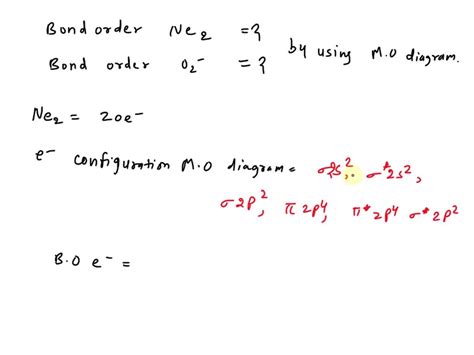 Bond order Ne₂ = ?
Bond order O₂⁻ = ?
by using M.O diagram.
Ne₂ = 20e⁻
e⁻ configuration M.O diagram = σ2s², σ*2s²,
σ2p², π2p⁴, π*2p⁴ σ*2p²
B.O e⁻ =